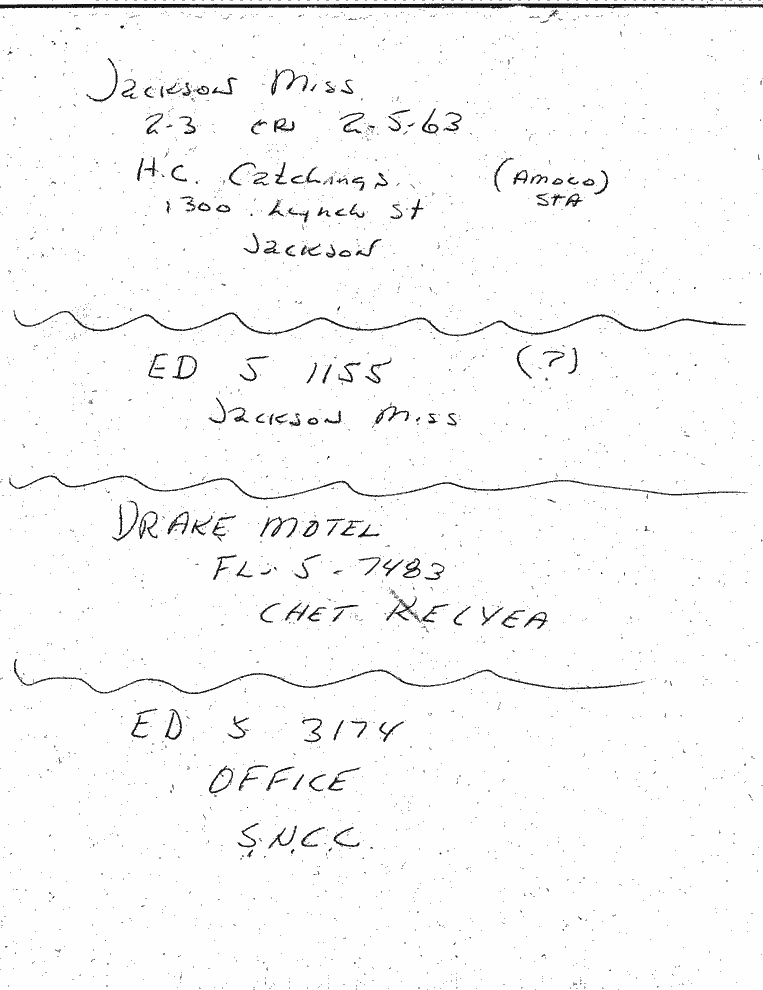 Jackson Miss
2-3 or 2-5-63
H.C. Catchings (Amoco)
1300 Lynch St STA
Jackson
ED 5 1155 (?)
Jackson Miss
DRAKE MOTEL
FL. 5-7483
CHET RELYEA
ED 5 3174
OFFICE
S.N.C.C.